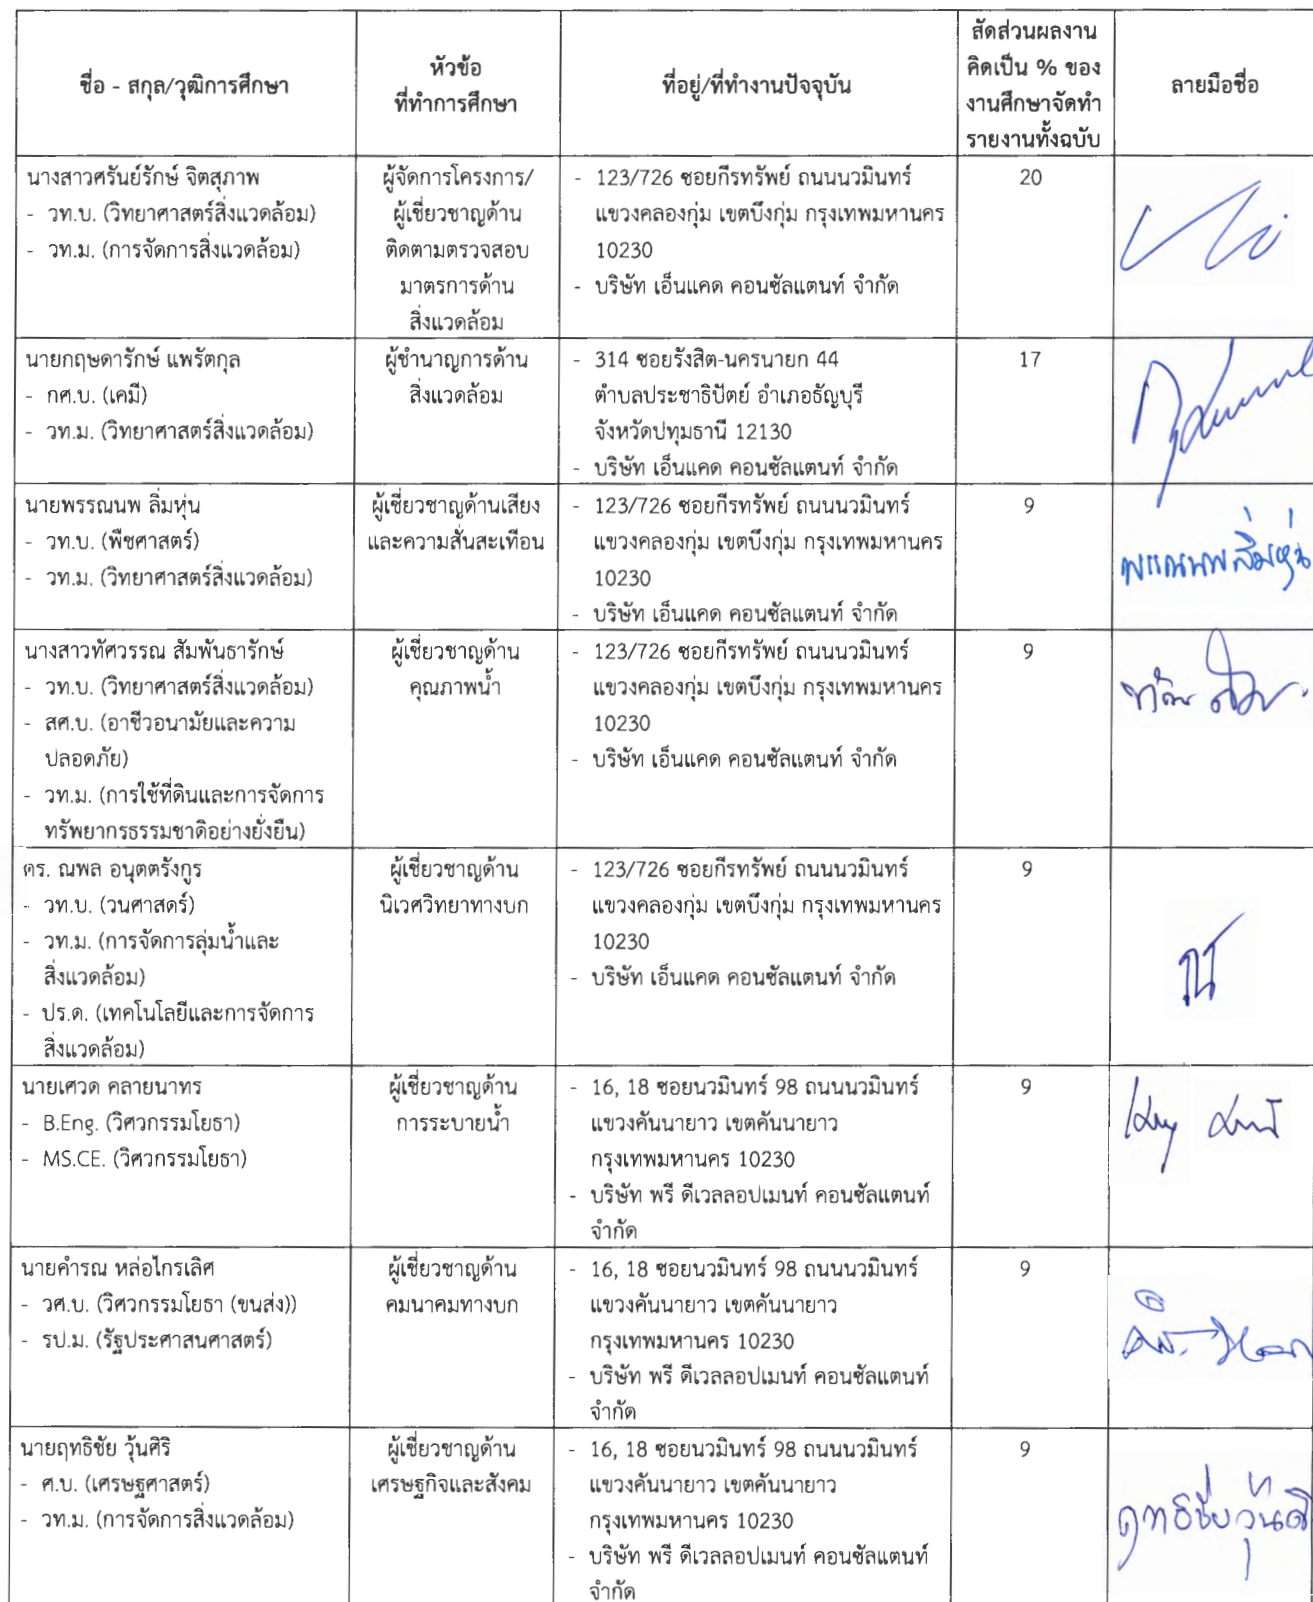 ชื่อ - สกุล/วุฒิการศึกษา
หัวข้อ
ที่ทำการศึกษา
ที่อยู่/ที่ทำงานปัจจุบัน
สัดส่วนผลงาน
คิดเป็น % ของ
งานศึกษาจัดทำ
รายงานทั้งฉบับ
ลายมือชื่อ
นางสาวศรันย์รักษ์ จิตสุภาพ
- วท.บ. (วิทยาศาสตร์สิ่งแวดล้อม)
- วท.ม. (การจัดการสิ่งแวดล้อม)
ผู้จัดการโครงการ/
ผู้เชี่ยวชาญด้าน
ติดตามตรวจสอบ
มาตรการด้าน
สิ่งแวดล้อม
- 123/726 ซอยกีรทรัพย์ ถนนนวมินทร์
แขวงคลองกุ่ม เขตบึงกุ่ม กรุงเทพมหานคร
10230
- บริษัท เอ็นแคด คอนซัลแตนท์ จำกัด
20
นายกฤษดารักษ์ แพรัตกุล
- กศ.บ. (เคมี)
- วท.ม. (วิทยาศาสตร์สิ่งแวดล้อม)
ผู้ชำนาญการด้าน
สิ่งแวดล้อม
- 314 ซอยรังสิต-นครนายก 44
ตำบลประชาธิปัตย์ อำเภอธัญบุรี
จังหวัดปทุมธานี 12130
- บริษัท เอ็นแคด คอนซัลแตนท์ จำกัด
17
นายพรรณนพ ลิ่มหุ่น
- วท.บ. (พืชศาสตร์)
- วท.ม. (วิทยาศาสตร์สิ่งแวดล้อม)
ผู้เชี่ยวชาญด้านเสียง
และความสั่นสะเทือน
- 123/726 ซอยกีรทรัพย์ ถนนนวมินทร์
แขวงคลองกุ่ม เขตบึงกุ่ม กรุงเทพมหานคร
10230
- บริษัท เอ็นแคด คอนซัลแตนท์ จำกัด
9
พรรณนพ ลิ่มหุ่น
นางสาวทัศวรรณ สัมพันธารักษ์
- วท.บ. (วิทยาศาสตร์สิ่งแวดล้อม)
- สศ.บ. (อาชีวอนามัยและความ
ปลอดภัย)
- วท.ม. (การใช้ที่ดินและการจัดการ
ทรัพยากรธรรมชาติอย่างยั่งยืน)
ผู้เชี่ยวชาญด้าน
คุณภาพน้ำ
- 123/726 ซอยกีรทรัพย์ ถนนนวมินทร์
แขวงคลองกุ่ม เขตบึงกุ่ม กรุงเทพมหานคร
10230
- บริษัท เอ็นแคด คอนซัลแตนท์ จำกัด
9
ดร. ณพล อนุตตรังกูร
- วท.บ. (วนศาสตร์)
- วท.ม. (การจัดการลุ่มน้ำและ
สิ่งแวดล้อม)
- ปร.ด. (เทคโนโลยีและการจัดการ
สิ่งแวดล้อม)
ผู้เชี่ยวชาญด้าน
นิเวศวิทยาทางบก
- 123/726 ซอยกีรทรัพย์ ถนนนวมินทร์
แขวงคลองกุ่ม เขตบึงกุ่ม กรุงเทพมหานคร
10230
- บริษัท เอ็นแคด คอนซัลแตนท์ จำกัด
9
นายเศวด คลายนาทร
- B.Eng. (วิศวกรรมโยธา)
- MS.CE. (วิศวกรรมโยธา)
ผู้เชี่ยวชาญด้าน
การระบายน้ำ
- 16, 18 ซอยนวมินทร์ 98 ถนนนวมินทร์
แขวงคันนายาว เขตคันนายาว
กรุงเทพมหานคร 10230
- บริษัท พรี ดีเวลลอปเมนท์ คอนซัลแตนท์
จำกัด
9
นายคำรณ หล่อไกรเลิศ
- วศ.บ. (วิศวกรรมโยธา (ขนส่ง))
- รป.ม. (รัฐประศาสนศาสตร์)
ผู้เชี่ยวชาญด้าน
คมนาคมทางบก
- 16, 18 ซอยนวมินทร์ 98 ถนนนวมินทร์
แขวงคันนายาว เขตคันนายาว
กรุงเทพมหานคร 10230
- บริษัท พรี ดีเวลลอปเมนท์ คอนซัลแตนท์
จำกัด
9
นายฤทธิชัย วุ้นศิริ
- ศ.บ. (เศรษฐศาสตร์)
- วท.ม. (การจัดการสิ่งแวดล้อม)
ผู้เชี่ยวชาญด้าน
เศรษฐกิจและสังคม
- 16, 18 ซอยนวมินทร์ 98 ถนนนวมินทร์
แขวงคันนายาว เขตคันนายาว
กรุงเทพมหานคร 10230
- บริษัท พรี ดีเวลลอปเมนท์ คอนซัลแตนท์
จำกัด
9